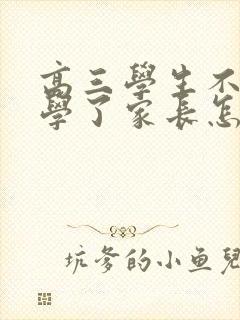 高三學生不
學了家長怎
坑爹的小鱼兒